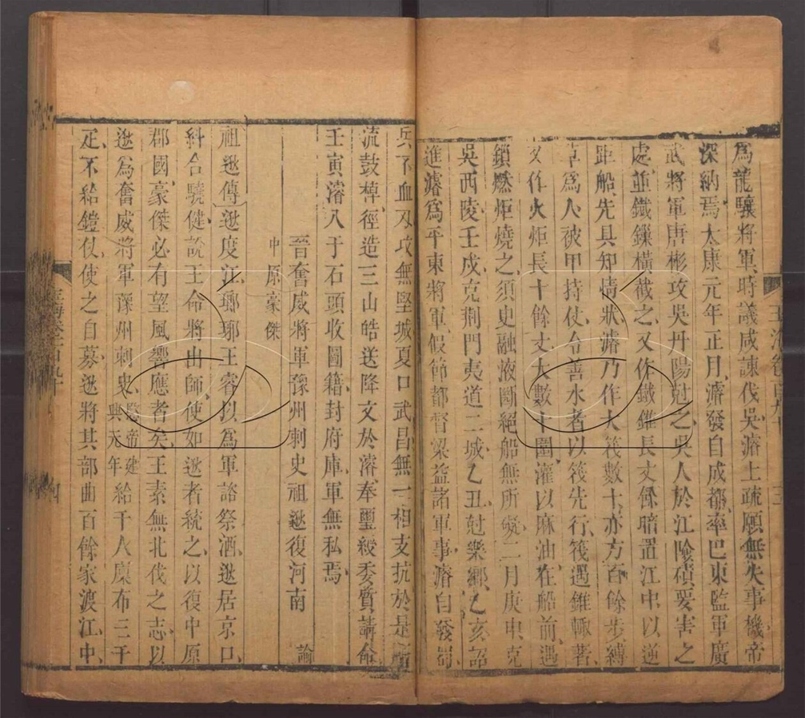 為龍驤將軍時議咸諫伐吳濬上疏願無失事機帝
深納焉太康元年正月濬發自成都率巴東監軍廣
武將軍唐彬攻吳丹陽尅之吳人於江險磧要害之
處並鐵鎖橫截之又作鐵錐長丈餘暗置江中以逆
距船先具知情狀濬乃作大筏數十亦方百餘步縛
草為人被甲持仗令善水者以筏先行筏遇錐輒著
又作火炬長十餘丈大數十圍灌以麻油在船前遇
鎖燃炬燒之須臾融液斷絕船無所礙二月庚申克
吳西陵壬戌克荆門夷道二城乙丑尅樂鄉乙亥詔
進濬為平東將軍假節都督梁益諸軍事濬自發蜀
兵不血刃攻無堅城夏口武昌無一相支抗於是
流鼓棹徑造三山皓送降文於濬奉璽綬委質請命
壬寅濬入于石頭收圖籍封府庫軍無私焉
晉奮威將軍豫州刺史祖逖復河南 諭
中原豪傑
祖逖傳逖度江瑯琊王睿以為軍諮祭酒逖居京口
糾合驍健說王命將出師使如逖者統之以復中原
郡國豪傑必有望風響應者矣王素無北伐之志以
逖為奮威將軍豫州刺史愍帝建興元年給千人廩布三千
疋不給鎧仗使之自募逖將其部曲百餘家渡江中